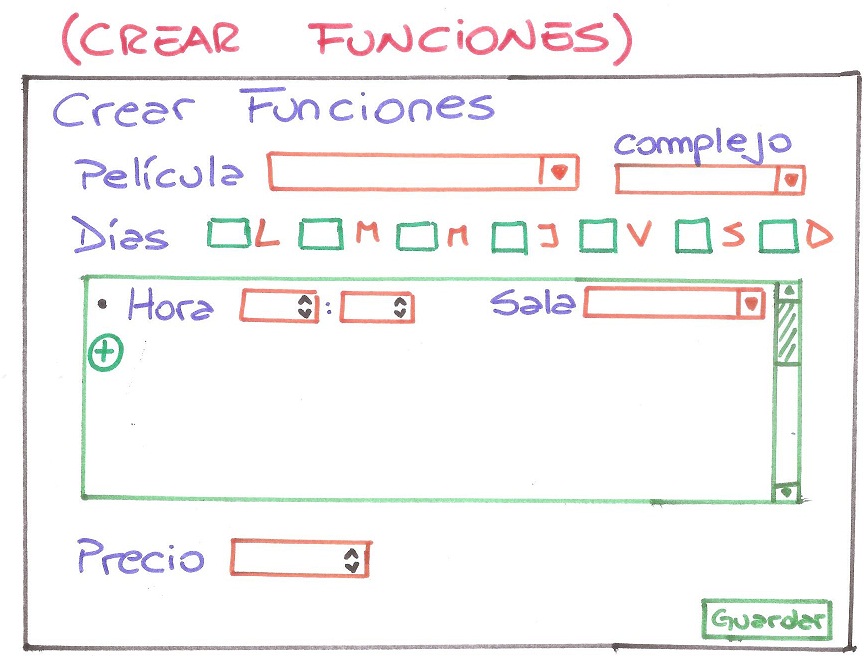 (CREAR FUNCIONES)
Crear Funciones
Película complejo
Días L M M J V S D
• Hora : Sala
+
Precio
Guardar